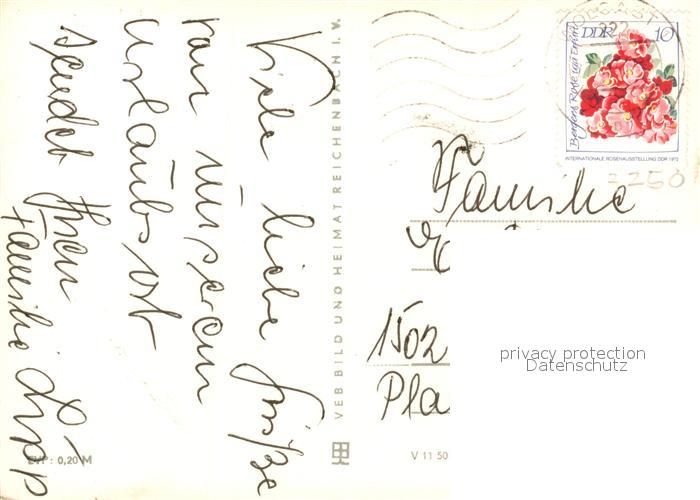 Viele liebe Grüße
von unserem
Urlaubsort
sendet Ihnen
Familie Lipp
EVP: 0,20 M
VEB BILD UND HEIMAT REICHENBACH I. V.
V 11 50
DDR 10
Bergers Rose aus Erfurt
INTERNATIONALE ROSENAUSSTELLUNG DDR 1972
2250
Familie
1502
Pla
privacy protection
Datenschutz